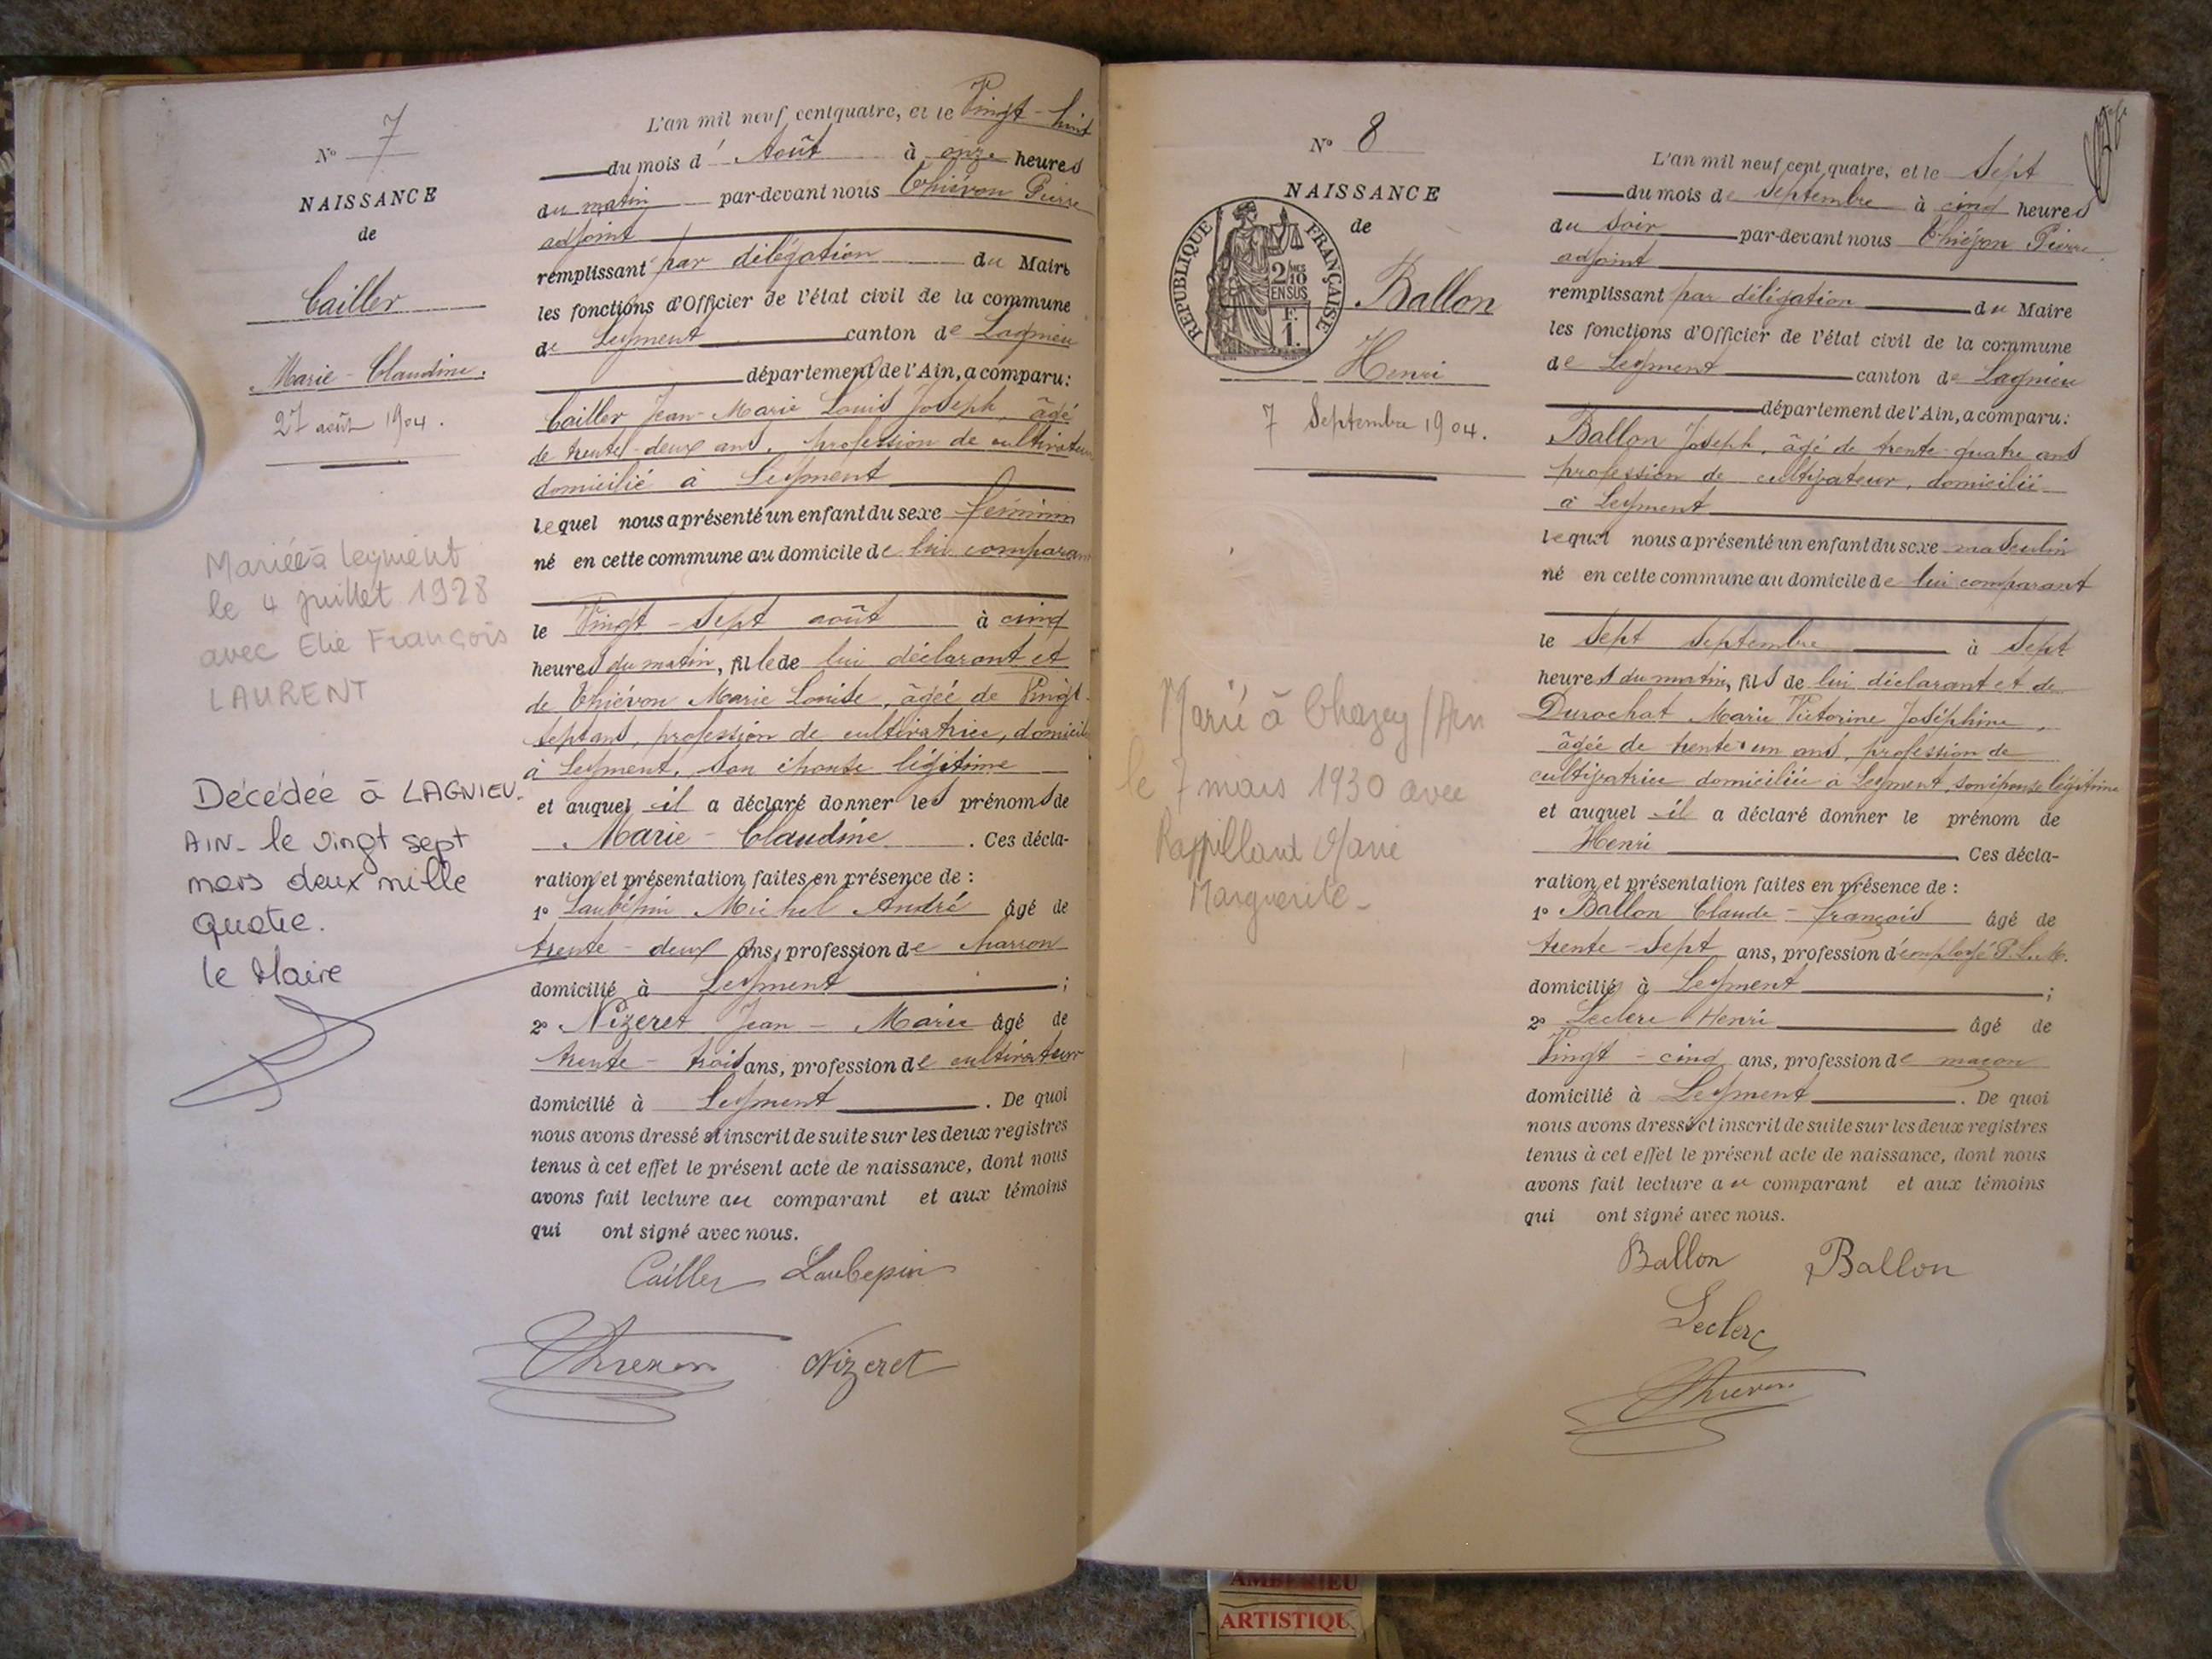 N° 7
NAISSANCE
de
Cailler
Marie-Claudine.
27 août 1904.
Mariée à Leyment
le 4 juillet 1928
avec Elie François
LAURENT
Décédée à LAGNIEU.
AIN - le vingt sept
mars deux mille
quatre.
le Maire
L'an mil neuf cent quatre, et le Vingt-huit
du mois d'Août à onze heures
du matin par-devant nous Thiévon Pierre
adjoint
remplissant par délégation du Maire
les fonctions d'Officier de l'état civil de la commune
de Leyment canton de Lagnieu
département de l'Ain, a comparu:
Cailler Jean-Marie Louis Joseph, âgé
de trente-deux ans, profession de cultivateur
domicilié à Leyment
lequel nous a présenté un enfant du sexe féminin
né en cette commune au domicile de lui comparant
le Vingt-sept août à cinq
heures du matin, fille de lui déclarant et
de Thiévon Marie Louise, âgée de Vingt-
sept ans, profession de cultivatrice, domicilié
à Leyment, son épouse légitime
et auquel il a déclaré donner les prénoms de
Marie-Claudine. Ces décla-
ration et présentation faites en présence de :
1° Laubépin Michel André âgé de
trente-deux ans, profession de charron
domicilié à Leyment ;
2° Nizeret Jean-Marie âgé de
trente-trois ans, profession de cultivateur
domicilié à Leyment. De quoi
nous avons dressé et inscrit de suite sur les deux registres
tenus à cet effet le présent acte de naissance, dont nous
avons fait lecture au comparant et aux témoins
qui ont signé avec nous.
Cailler Laubepin
Thievon Nizeret
N° 8
NAISSANCE
de
RÉPUBLIQUE FRANÇAISE
2/10 MES
EN SUS
F.
1.
Ballon
Henri
7 Septembre 1904.
Marié à Chazey/Ain
le 7 mars 1930 avec
Rappilland Marie
Marguerite-
L'an mil neuf cent quatre, et le Sept
du mois de Septembre à cinq heures
du soir par-devant nous Thiévon Pierre
adjoint
remplissant par délégation du Maire
les fonctions d'Officier de l'état civil de la commune
de Leyment canton de Lagnieu
département de l'Ain, a comparu:
Ballon Joseph, âgé de trente-quatre ans
profession de cultivateur, domicilié
à Leyment
lequel nous a présenté un enfant du sexe masculin
né en cette commune au domicile de lui comparant
le Sept Septembre à Sept
heures du matin, fils de lui déclarant et de
Durochat Marie Victorine Joséphine,
âgée de trente-un ans, profession de
cultivatrice domiciliée à Leyment, son épouse légitime
et auquel il a déclaré donner le prénom de
Henri Ces décla-
ration et présentation faites en présence de :
1° Ballon Claude-François âgé de
trente-sept ans, profession d'employé P.L.M.
domicilié à Leyment ;
2° Leclerc Henri âgé de
Vingt-cinq ans, profession de maçon
domicilié à Leyment. De quoi
nous avons dressé et inscrit de suite sur les deux registres
tenus à cet effet le présent acte de naissance, dont nous
avons fait lecture au comparant et aux témoins
qui ont signé avec nous.
Ballon Ballon
Leclerc
Thievon
AMBERIEU
ARTISTIQU